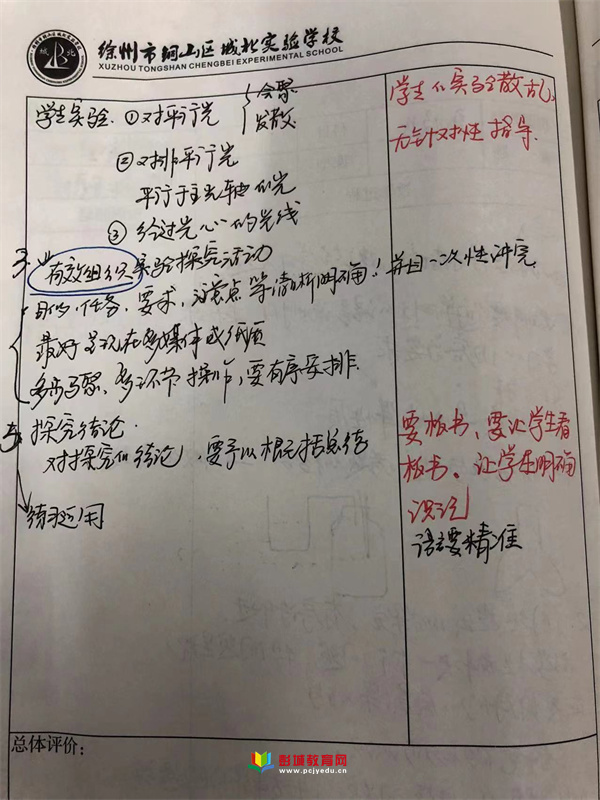 徐州市铜山区城北实验学校
XUZHOU TONGSHAN CHENGBEI EXPERIMENTAL SCHOOL
城 北
学生实验. ①对平行光 { 会聚
发散
②对排平行光
平行于主光轴的光
③ 经过光心的光线
有效组织实验探究活动
目的、任务、要求、注意点等清晰明确！并且一次性讲完
最好呈现在多媒体或纸质
多步骤、多环节操作,要有序安排.
探究结论.
对探究的结论,要予以概括总结
练习运用
学生的实验散乱,
无针对性指导.
要板书、要让学生看
板书、让学生明确
结论
语言要精准
总体评价：
彭城教育网
www.pcjyedu.cn